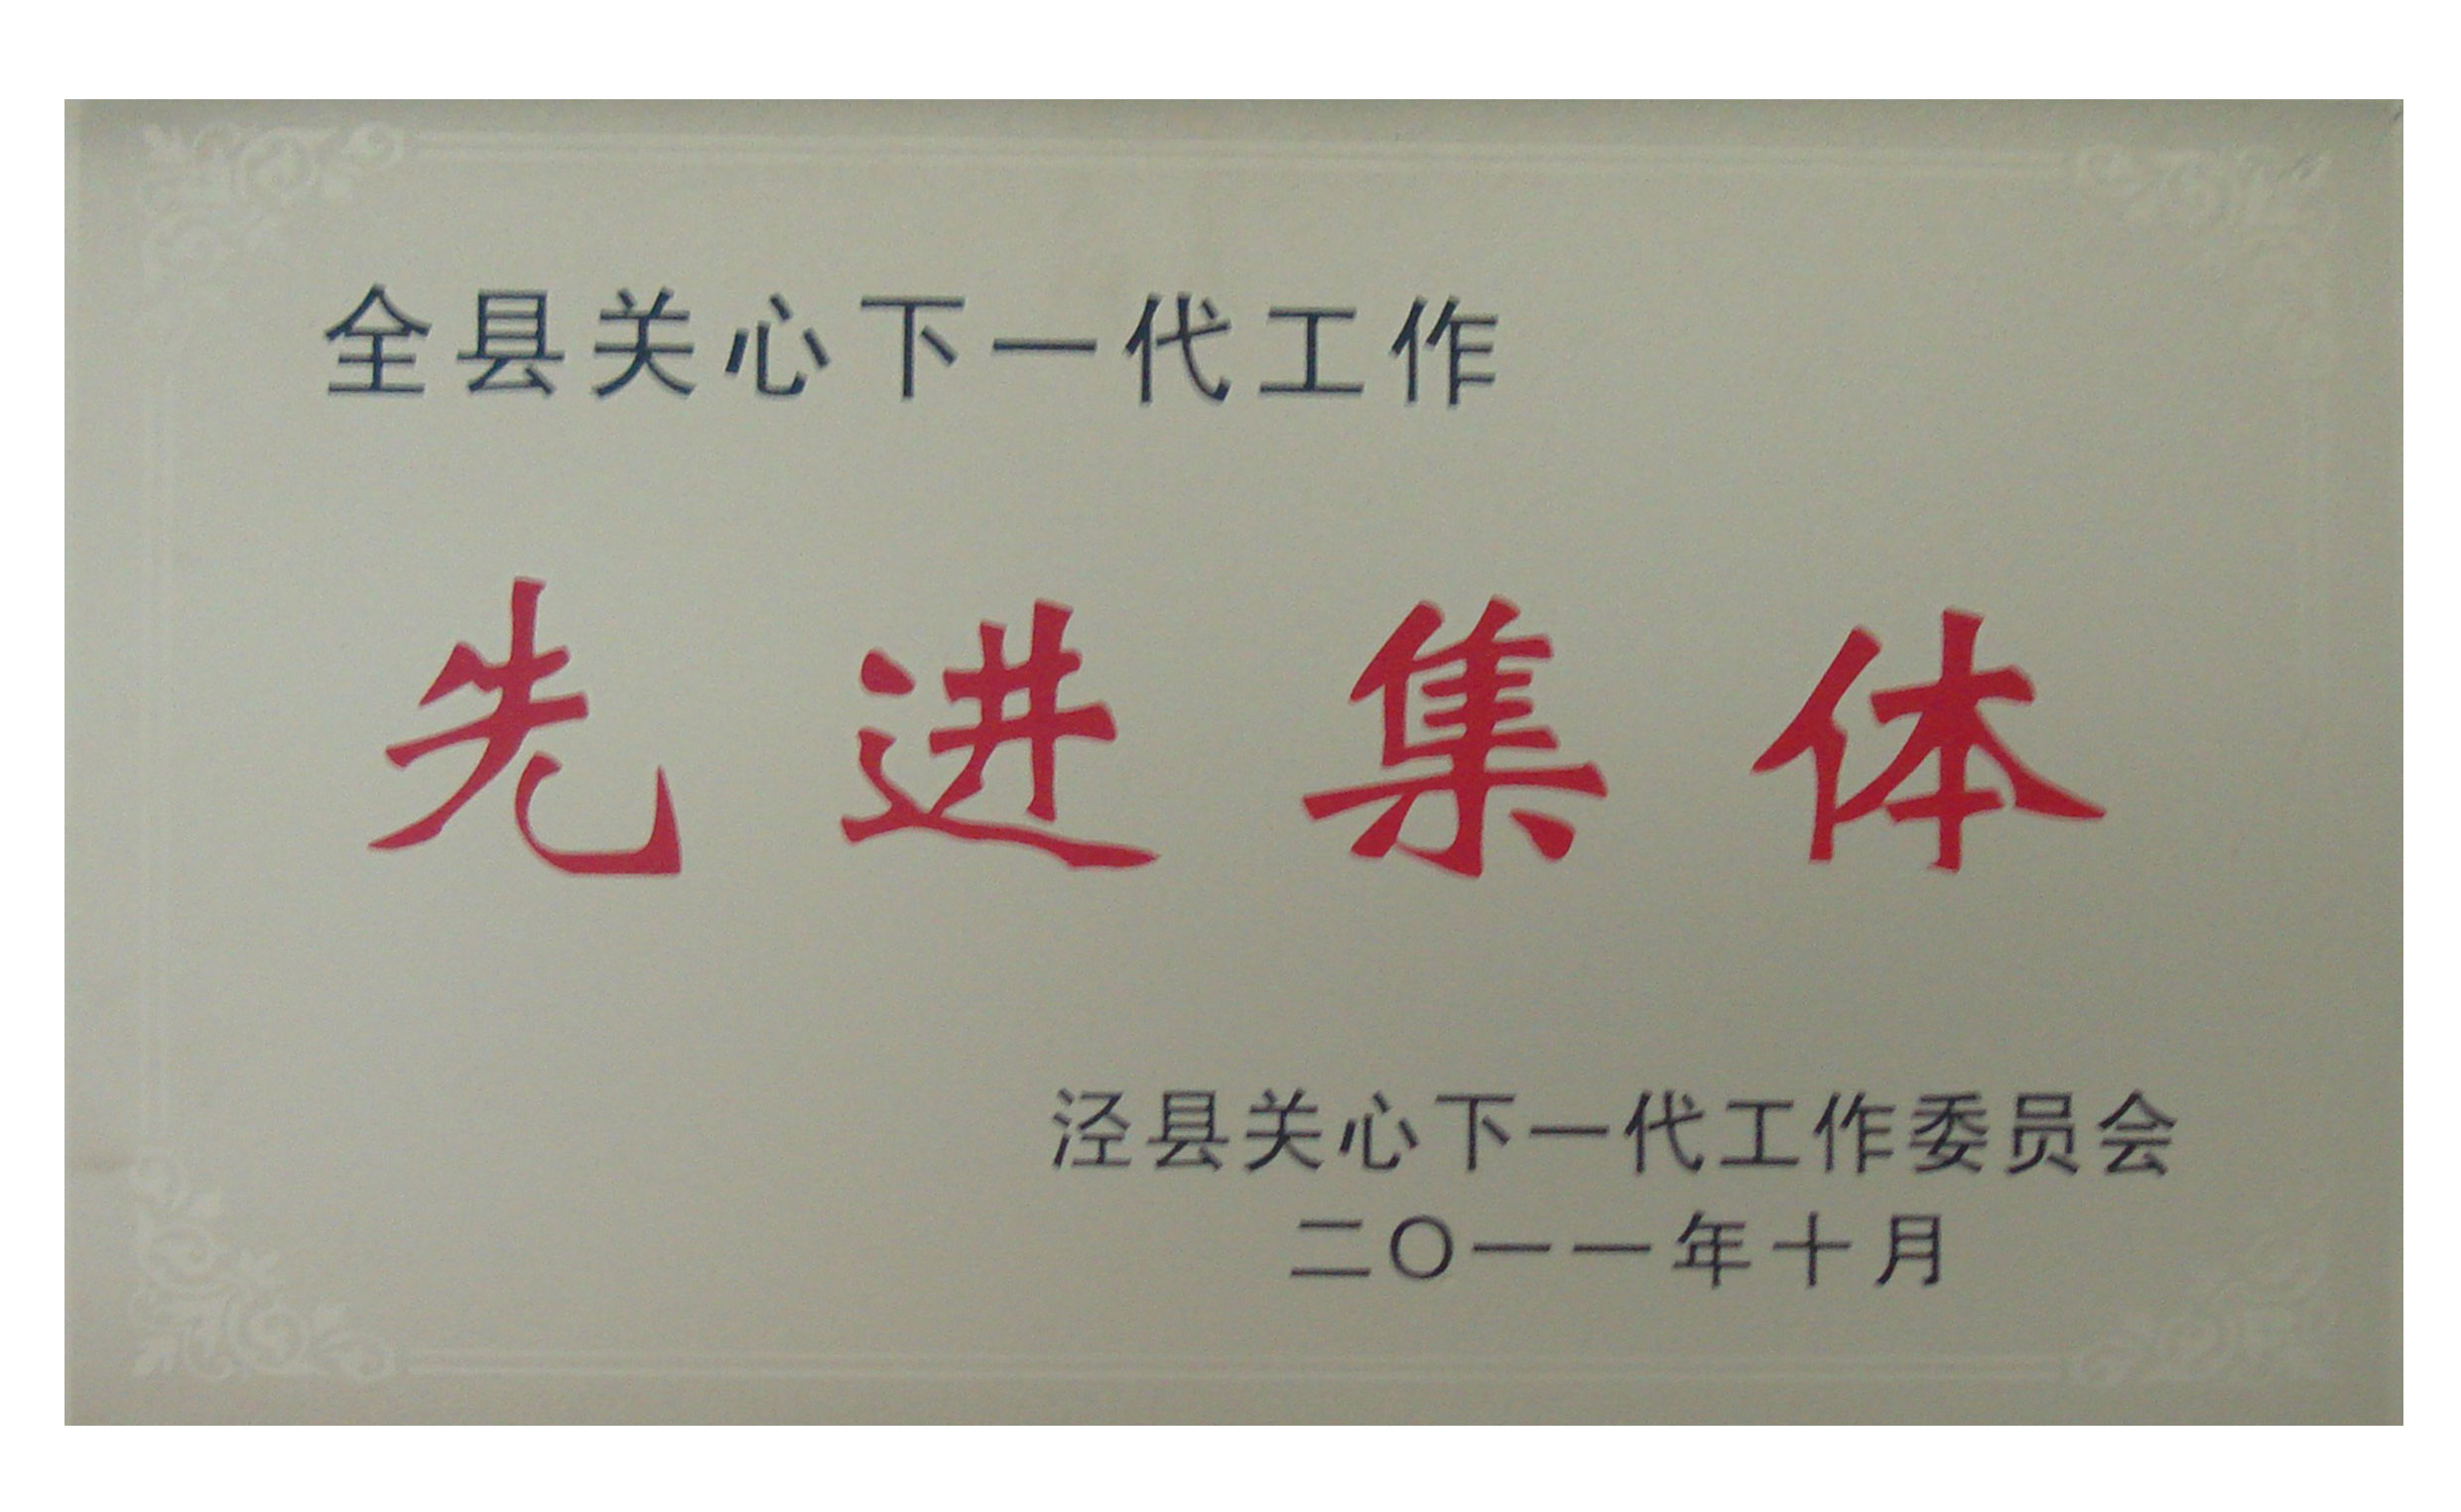 全县关心下一代工作
先进集体
泾县关心下一代工作委员会
二〇一一年十月